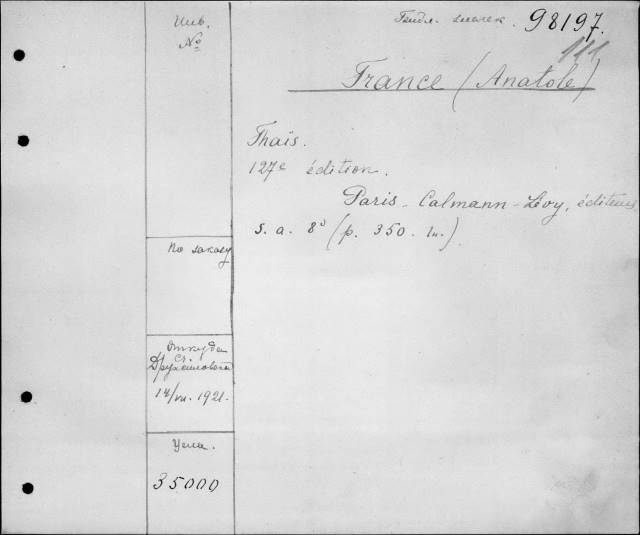 Инв.
№
98197.
111
France (Anatole)
Thaïs.
127e édition.
Paris - Calmann-Lévy, éditeurs
s. a. 8° (p. 350. in.).
По заказу
Откуда
Ст.
14/VII. 1921.
Цена.
35000